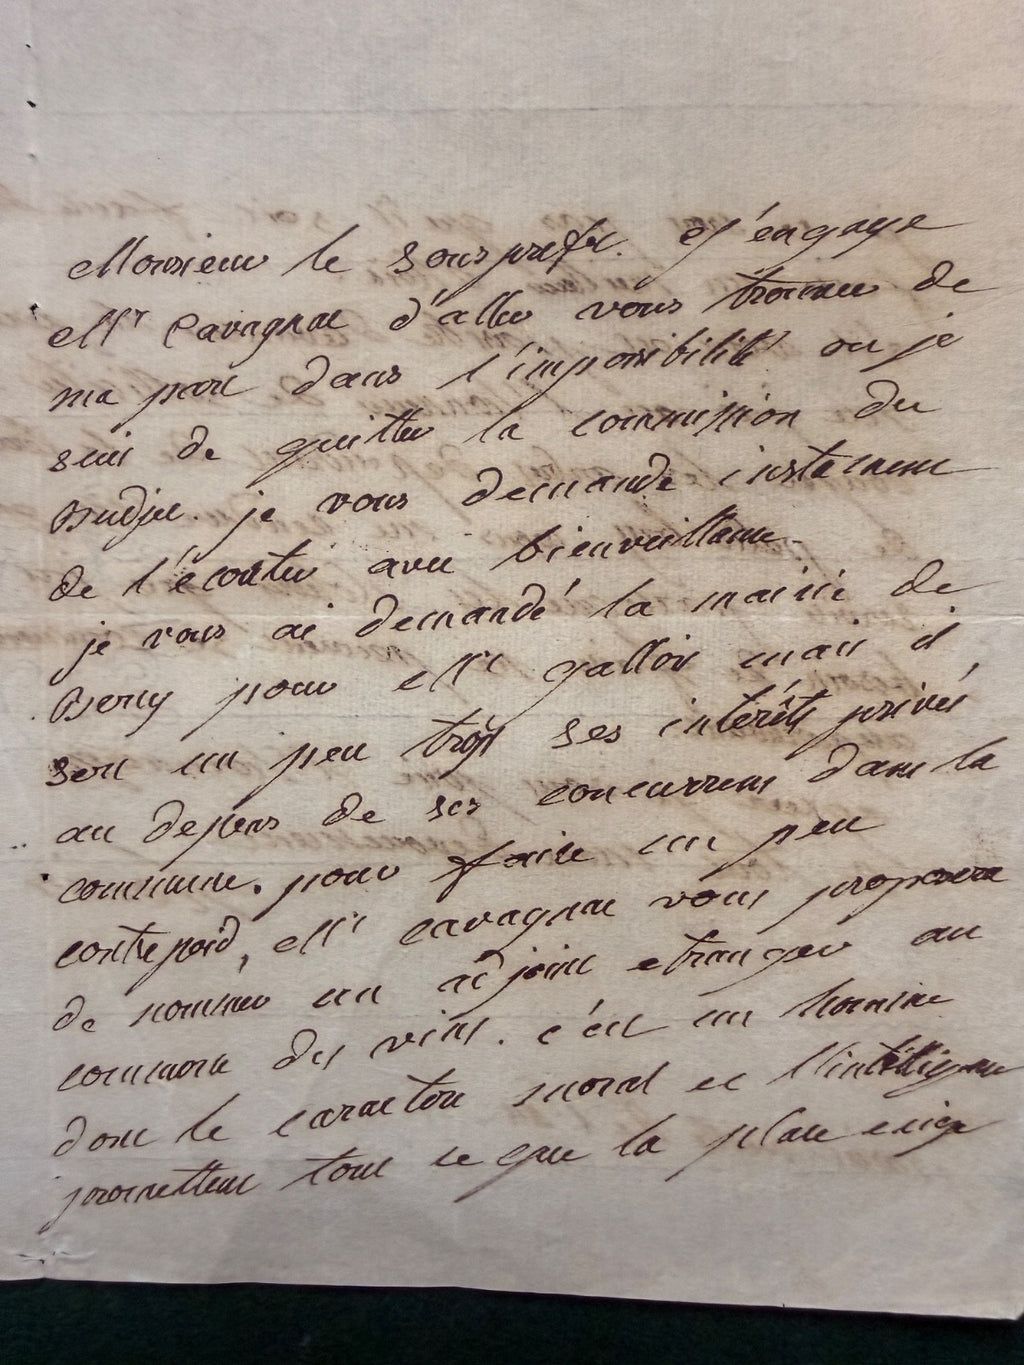 Monsieur le sousprefet. j'engage
Mr Cavagnac d'aller vous trouver de
ma part dans l'impossibilité ou je
suis de quitter la commission du
Budjet. je vous demande instament
de l'écouter avec bienveillance.
je vous ai demandé la mairie de
Bercy pour Mr gallois mais il
sert un peu trop ses intérêts privés
au depens de ses concurrens dans la
commune. pour faire un peu
contrepoid, Mr cavagnac vous proposera
de nommer un adjoint etranger au
commerce des vins. c'est un homme
dont le caractere moral et l'intelligence
promettent tout ce que la place exige